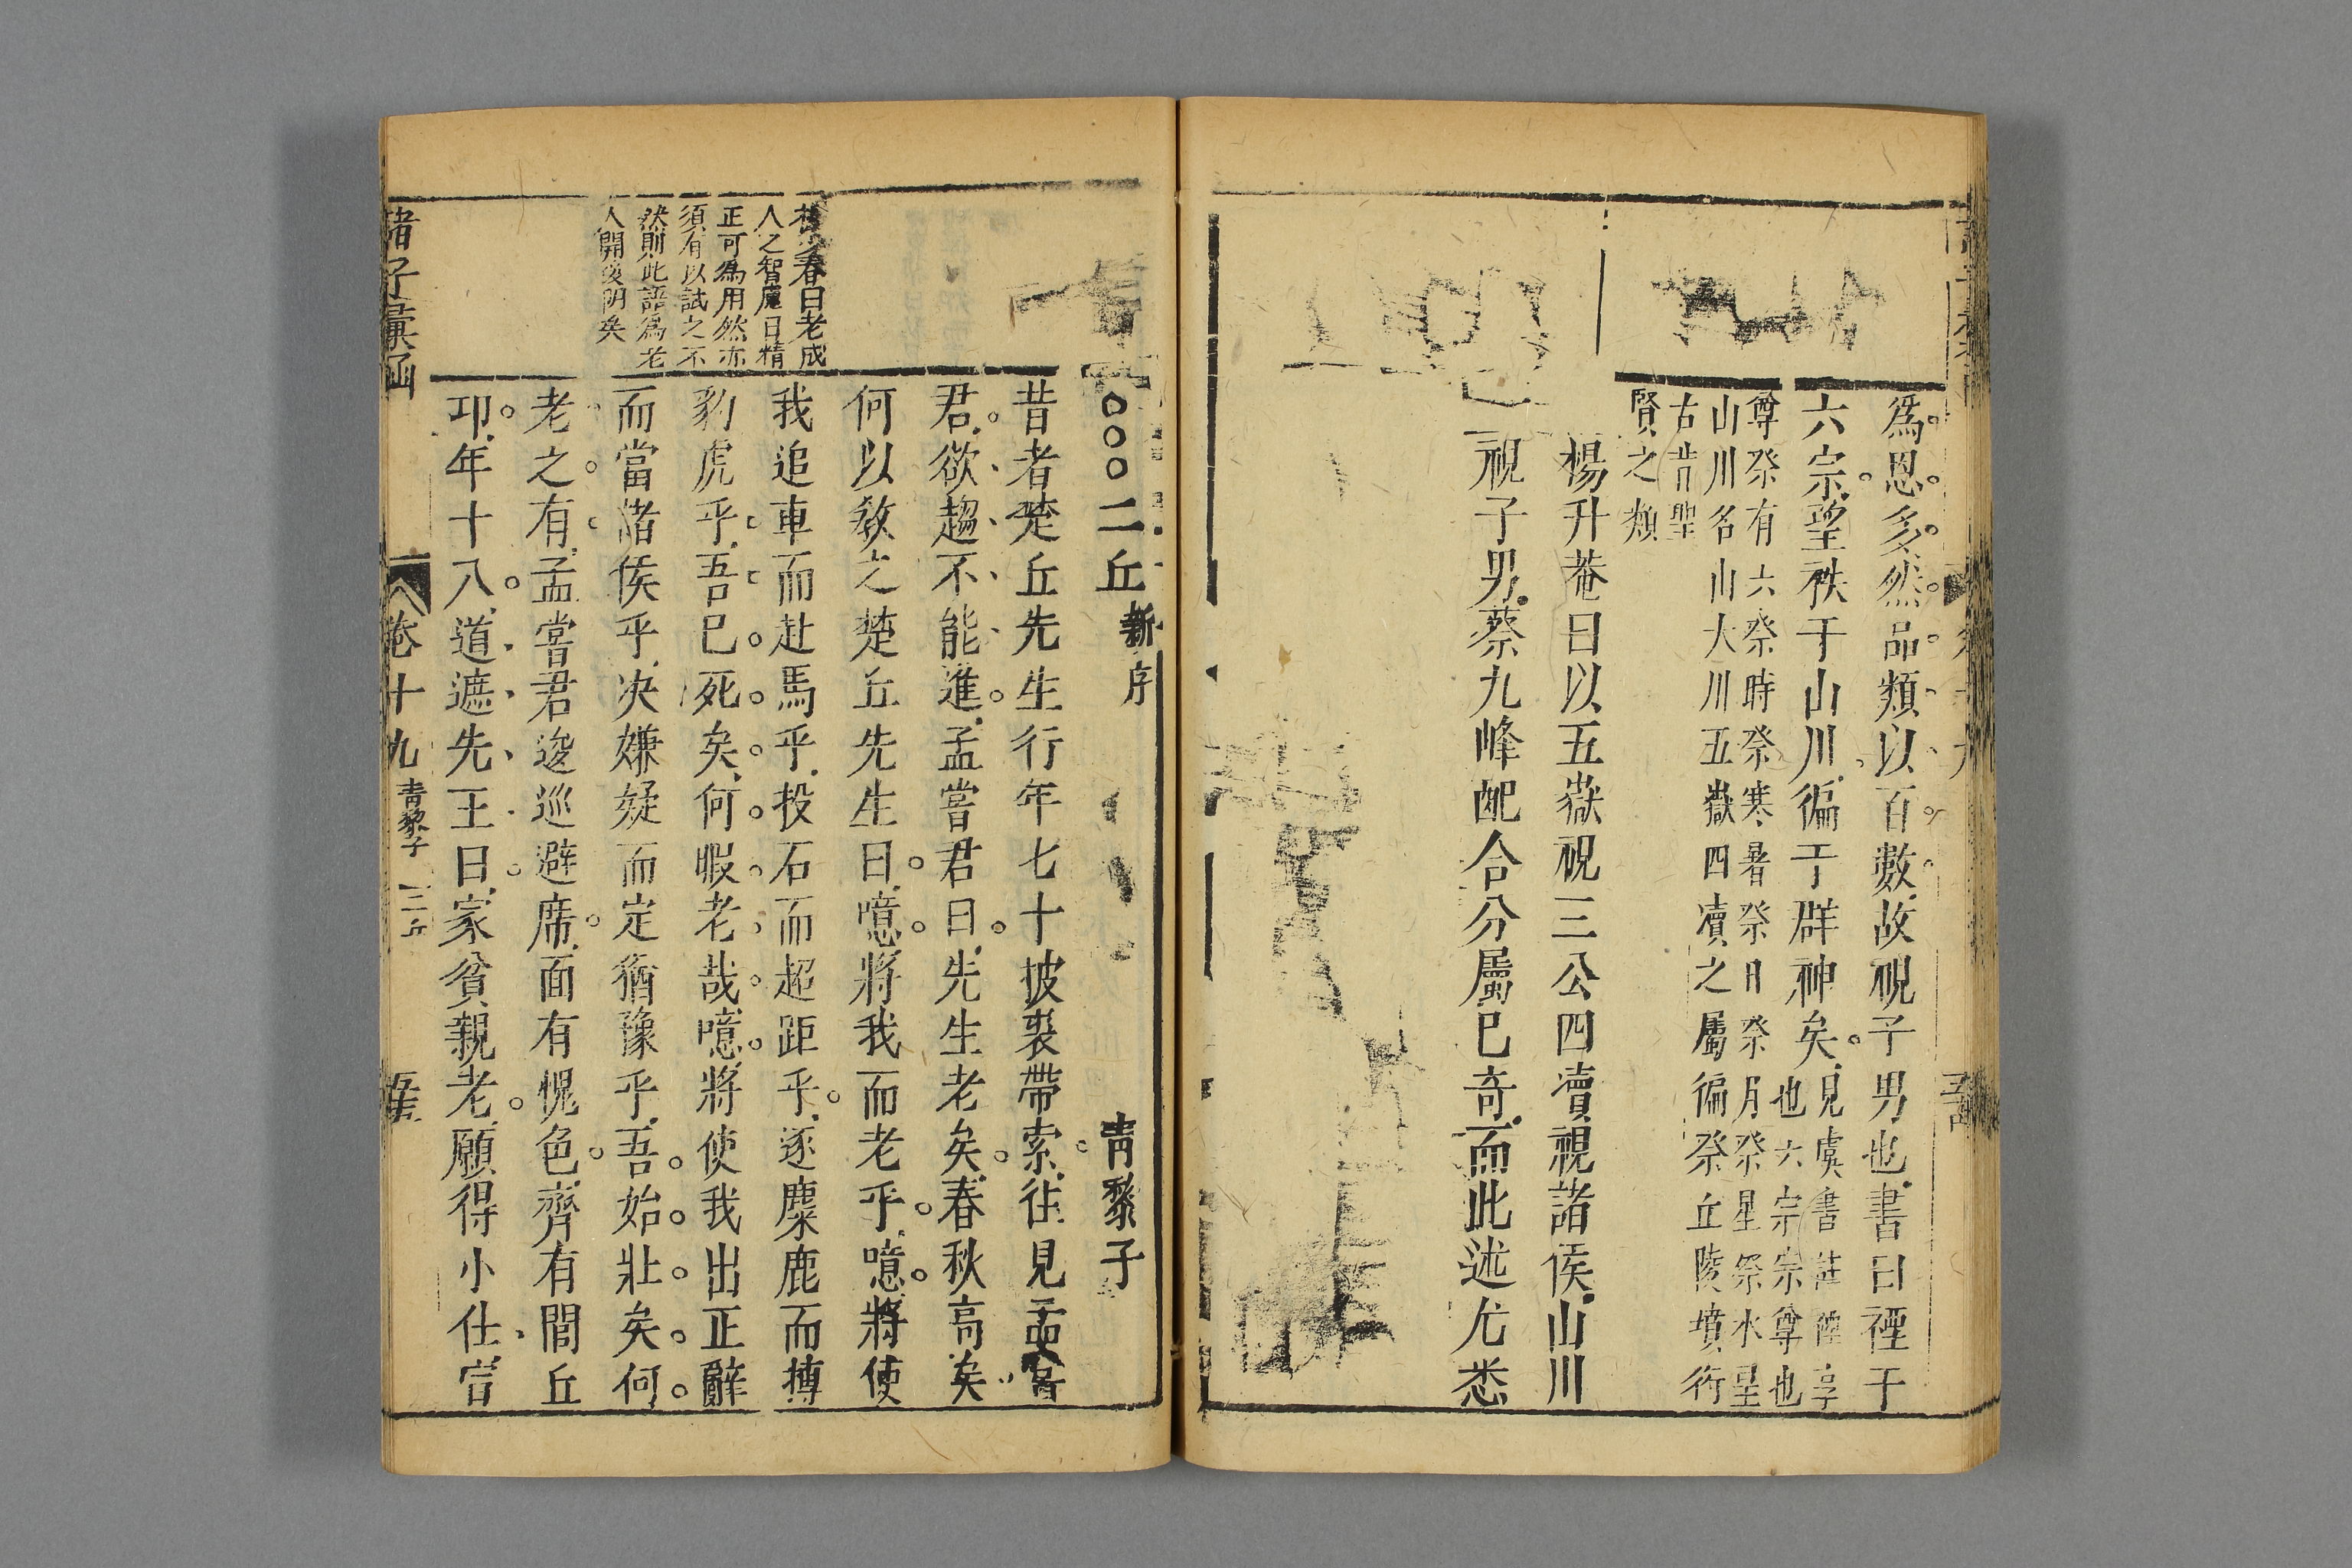 為恩多然品類以百數故視子男也書曰禋于
六宗望秩于山川徧于群神矣
見虞書註禋享
也六宗宗尊也
尊祭有六祭時祭寒暑祭日祭月祭星祭水旱
山川名山大川五嶽四瀆之屬徧祭丘陵墳衍
古昔聖
賢之類
楊升菴曰以五嶽視三公四瀆視諸侯山川
視子男蔡九峰配合分屬巳奇而此述尤悉
二丘 新序 青黎子
昔者楚丘先生行年七十披裘帶索往見孟嘗
君欲趨不能進孟嘗君曰先生老矣春秋高矣
何以教之楚丘先生曰噫將我而老乎噫將使
我追車而赴馬乎投石而超距乎逐麋鹿而搏
豹虎乎吾巳死矣何暇老哉噫將使我出正辭
而當諸侯乎决嫌疑而定猶豫乎吾始壯矣何
老之有孟嘗君逡巡避席面有愧色齊有閭丘
卭年十八道遮先王曰家貧親老願得小仕宣
春曰老成
人之智慮日精
正可為用然亦
須有以試之不
然則此語為老
人開矣
諸子彙函 卷十九 青黎子 二丘